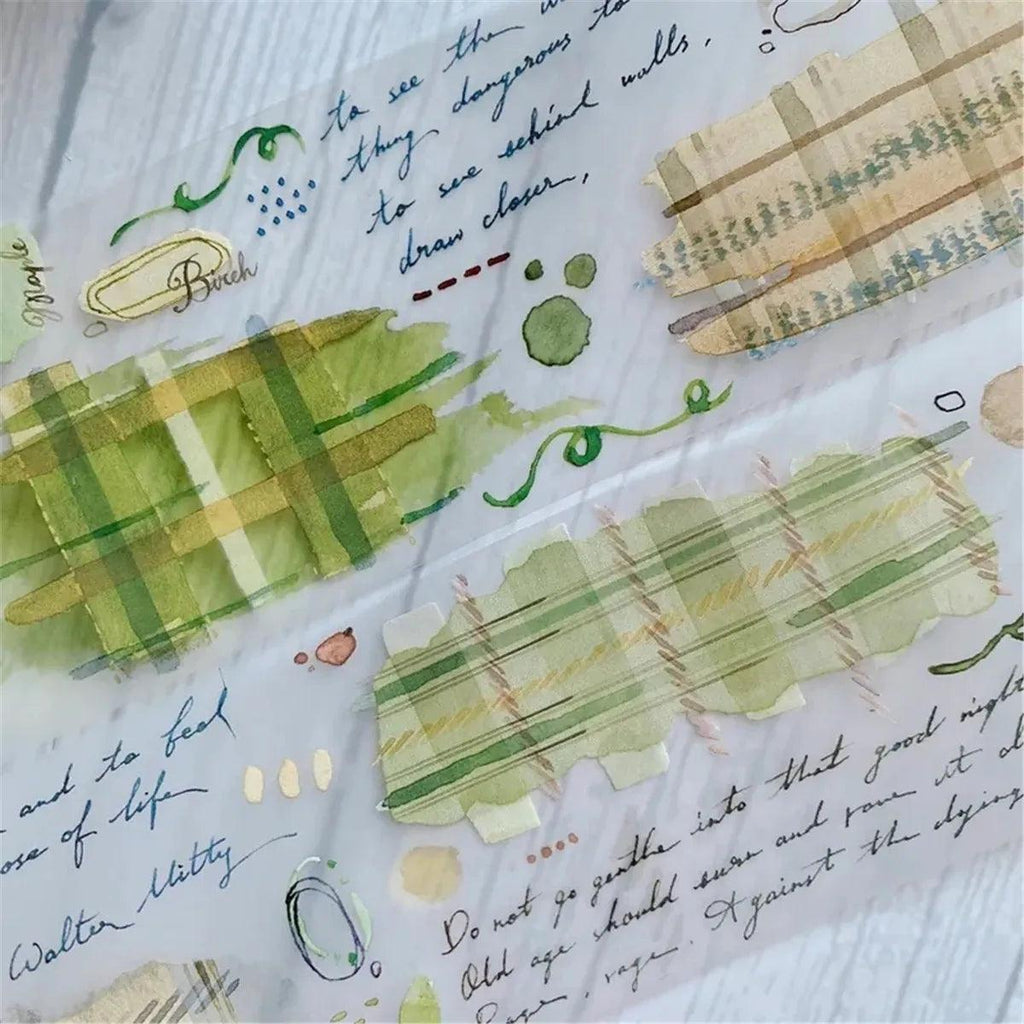 to see the
thing dangerous to
to see behind walls,
draw closer,
Maple
Birch
and to feel
ose of life
Walter Mitty
Do not go gentle into that good night
Old age should burn and rave at
Rage, rage. Against the dying